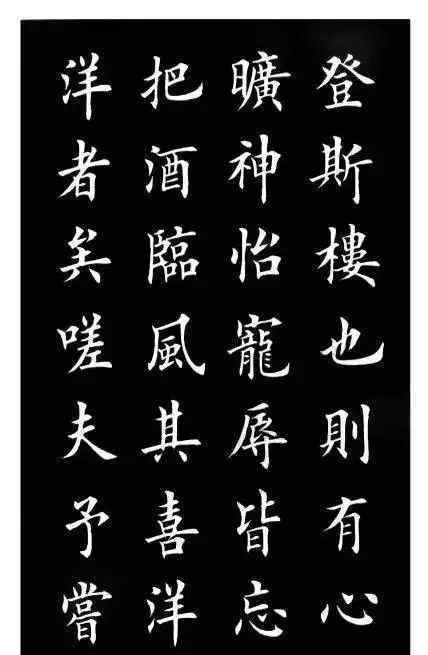 登斯樓也則有心
曠神怡寵辱皆忘
把酒臨風其喜洋
洋者矣嗟夫予嘗